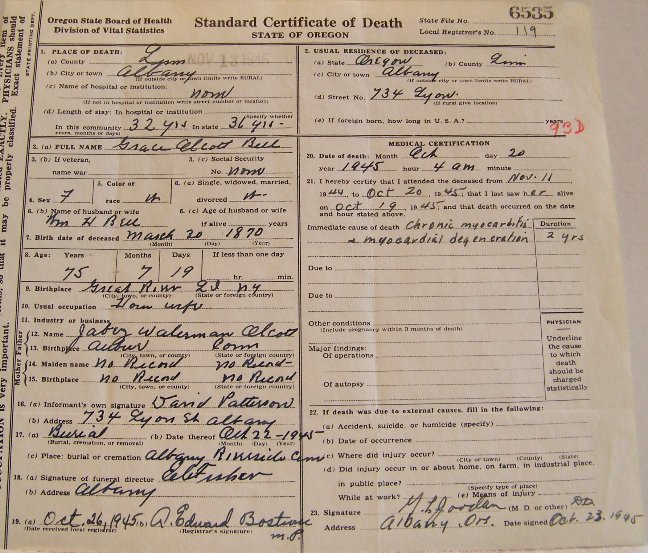 Oregon State Board of Health
Division of Vital Statistics
Standard Certificate of Death
STATE OF OREGON
State File No. 6535
Local Registrar's No. 119
1. PLACE OF DEATH:
(a) County Linn
(b) City or town Albany
(If outside city or town limits write RURAL)
(c) Name of hospital or institution:
none
(If not in hospital or institution write street number or location)
(d) Length of stay: In hospital or institution
(Specify whether
In this community 32 yrs In state 36 yrs
years, months or days)
2. USUAL RESIDENCE OF DECEASED:
(a) State Oregon (b) County Linn
(c) City or town Albany
(If outside city or town limits write RURAL)
(d) Street No. 734 Lyon
(If rural give location)
(e) If foreign born, how long in U. S. A.? years
93D
3. (a) FULL NAME Grace Alcott Bell
3. (b) If veteran,
name war
3. (c) Social Security
No. none
4. Sex F
5. Color or
race w
6. (a) Single, widowed, married,
divorced w
6. (b) Name of husband or wife
Wm H Bell
6. (c) Age of husband or wife
if alive years
7. Birth date of deceased March 20 1870
(Month) (Day) (Year)
8. Age: Years Months Days If less than one day
75 7 19 hr. min.
9. Birthplace Great River L I NY
(City, town, or county) (State or foreign country)
10. Usual occupation House wife
11. Industry or business
Father
12. Name Jabez Waterman Alcott
13. Birthplace Conn
(City, town, or county) (State or foreign country)
Mother
14. Maiden name No Record No Record
15. Birthplace No Record No Record
(City, town, or county) (State or foreign country)
16. (a) Informant's own signature David Patterson
(b) Address 734 Lyon St Albany
17. (a) Burial (b) Date thereof Oct 22-1945
(Burial, cremation, or removal) (Month) (Day) (Year)
(c) Place: burial or cremation Albany Riverside Cem
18. (a) Signature of funeral director Fisher
(b) Address Albany
19. (a) Oct. 26, 1945 (b) A. Edward Bostrom
(Date received local registrar) (Registrar's signature)
MEDICAL CERTIFICATION
20. Date of death: Month Oct day 20
year 1945 hour 4 am minute
21. I hereby certify that I attended the deceased from Nov. 11
1944 to Oct 20, 1945; that I last saw her alive
on Oct 19, 1945; and that death occurred on the date
and hour stated above.
Immediate cause of death Chronic myocarditis
& myocardial degeneration
Duration
2 yrs
Due to
Due to
Other conditions
(Include pregnancy within 3 months of death)
Major findings:
Of operations
Of autopsy
PHYSICIAN
Underline
the cause
to which
death
should be
charged
statistically
22. If death was due to external causes, fill in the following:
(a) Accident, suicide, or homicide (specify)
(b) Date of occurrence
(c) Where did injury occur?
(City or town) (County) (State)
(d) Did injury occur in or about home, on farm, in industrial place,
in public place?
(Specify type of place)
While at work? (e) Means of injury
23. Signature (M. D. or other)
Address Albany, Ore. Date signed Oct. 23, 1945